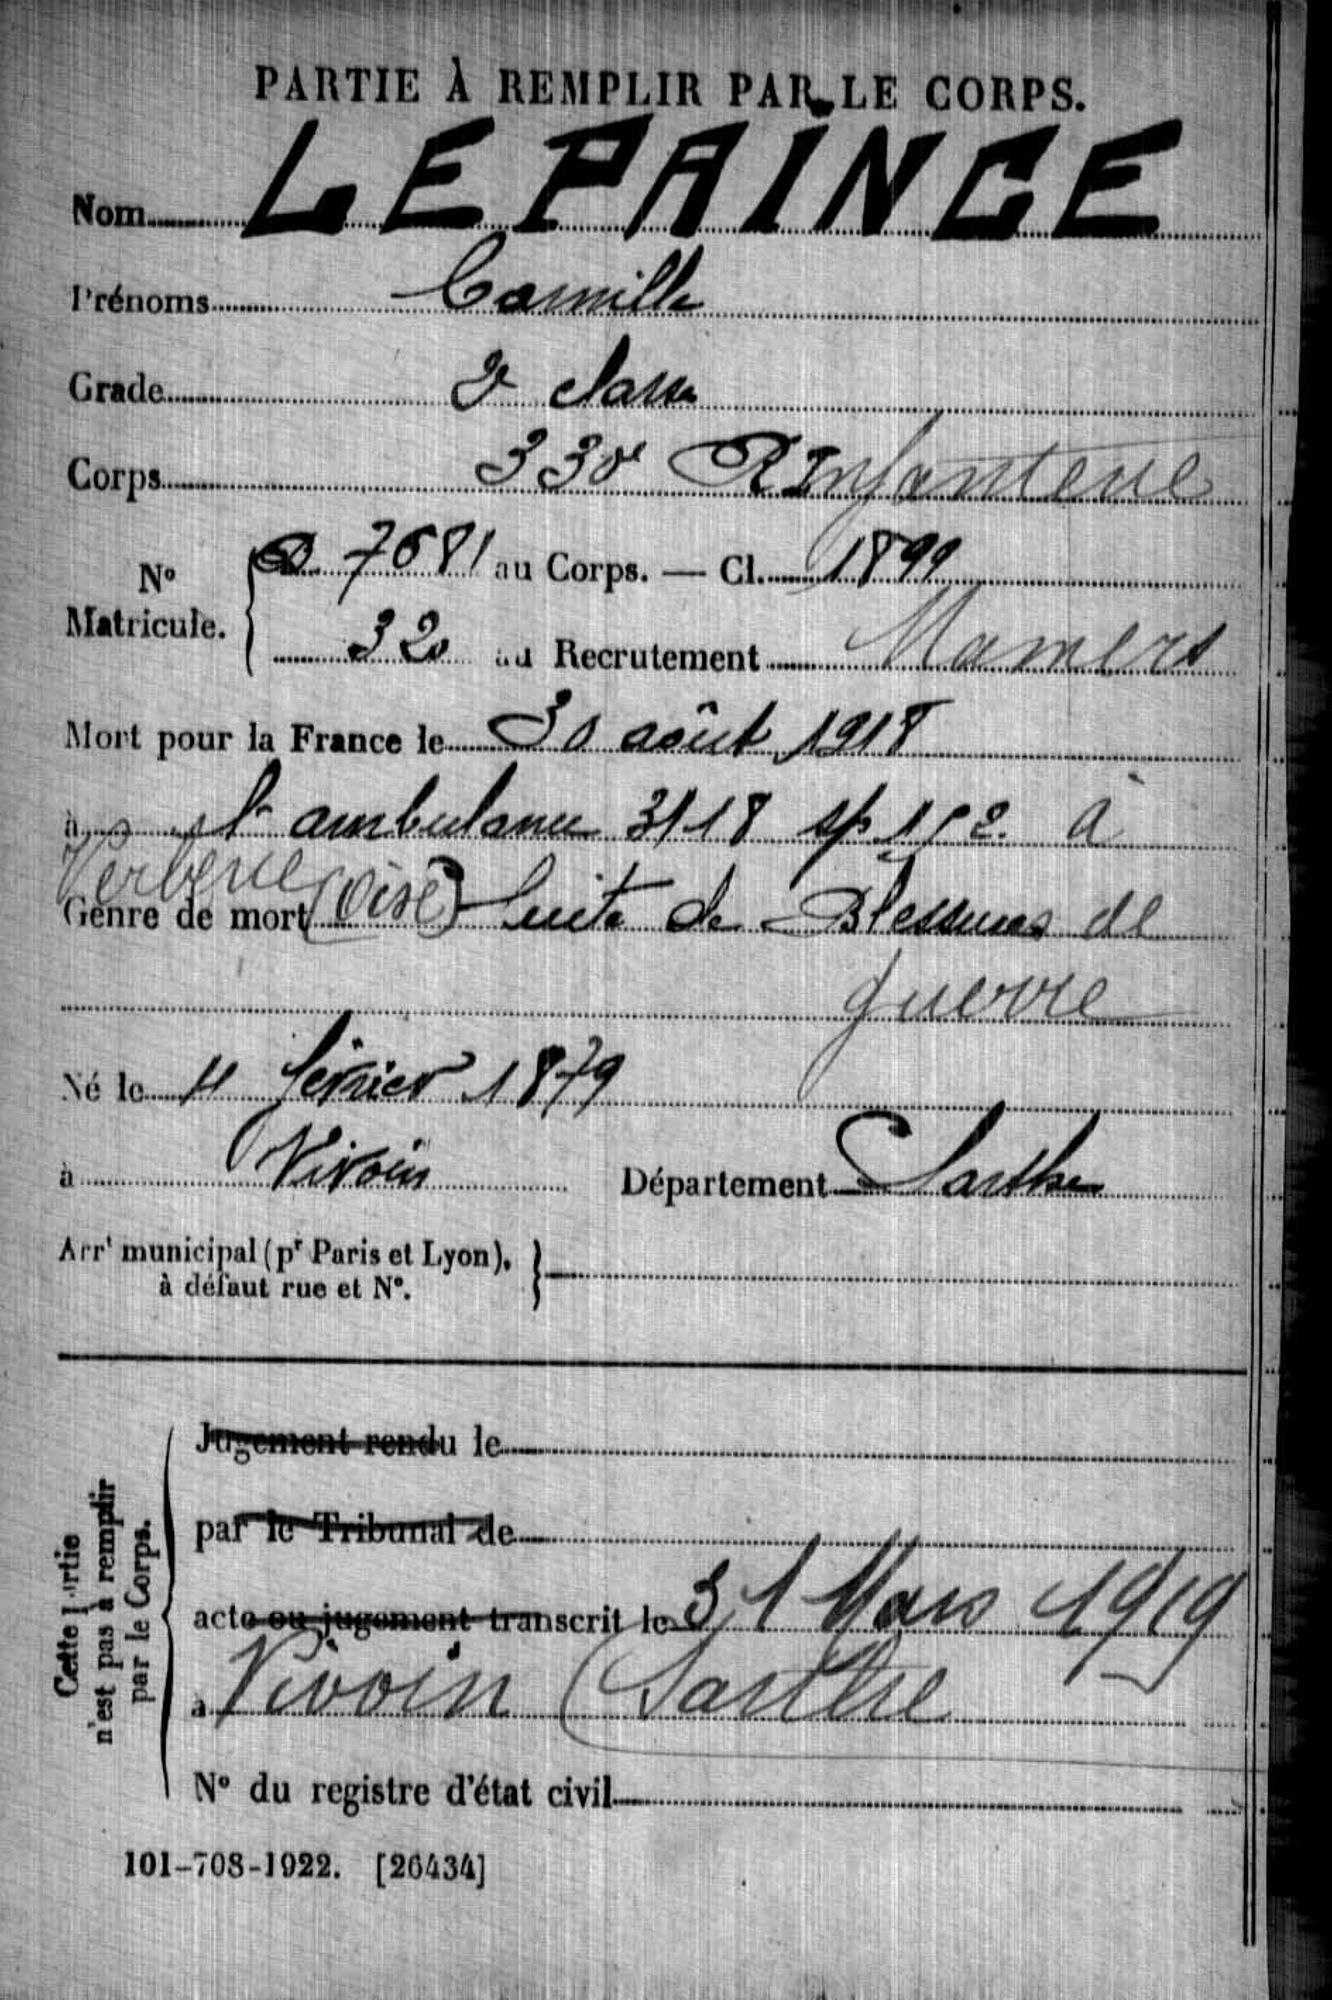 PARTIE À REMPLIR PAR LE CORPS.
Nom LEPAINGE
Prénoms Camille
Grade 2e classe
Corps 330e R Infanterie
No Matricule. 7681 au Corps. — Cl. 1899
320 au Recrutement Mamers
Mort pour la France le 30 août 1918
à l'ambulance 3/18 sp 192 à
Verberie (Oise)
Genre de mort Suite de Blessures de
guerre
Né le 4 février 1879
à Vivoin Département Sarthe
Arrt municipal (pr Paris et Lyon),
à défaut rue et N°.
Cette partie
n'est pas à remplir
par le Corps.
Jugement rendu le
par le Tribunal de
acte ou jugement transcrit le 31 Mars 1919
à Vivoin (Sarthe
N° du registre d'état civil
101-708-1922. [26434]